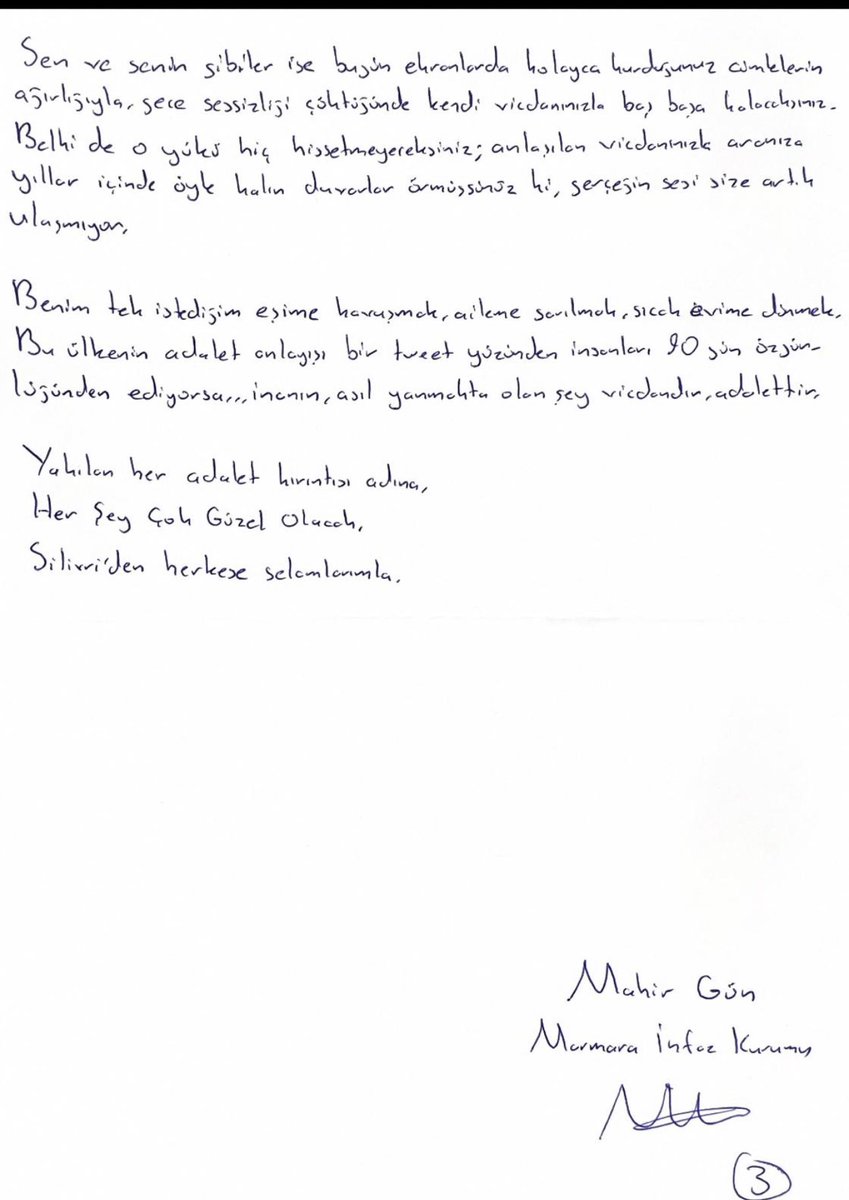 Sen ve senin gibiler ise bugün ekranlarda kolayca kurduğunuz cümlelerin
ağırlığıyla, gece sessizliği çöktüğünde kendi vicdanınızla baş başa kalacaksınız.
Belki de o yükü hiç hissetmeyereksiniz; anlaşılan vicdanınızla aranıza
yıllar içinde öyle kalın duvarlar örmüşsünüz ki, gerçeğin sesi size artık
ulaşmıyor.
Benim tek istediğim eşime kavuşmak, aileme sarılmak, sıcak evime dönmek.
Bu ülkenin adalet anlayışı bir tweet yüzünden insanları 90 gün özgün-
lüğünden ediyorsa... inanın, asıl yanmakta olan şey vicdandır, adalettir.
Yakılan her adalet kırıntısı adına,
Her Şey Çok Güzel Olacak,
Silivri'den herkese selamlarımla.
Mahir Gün
Marmara İnfaz Kurumu
3